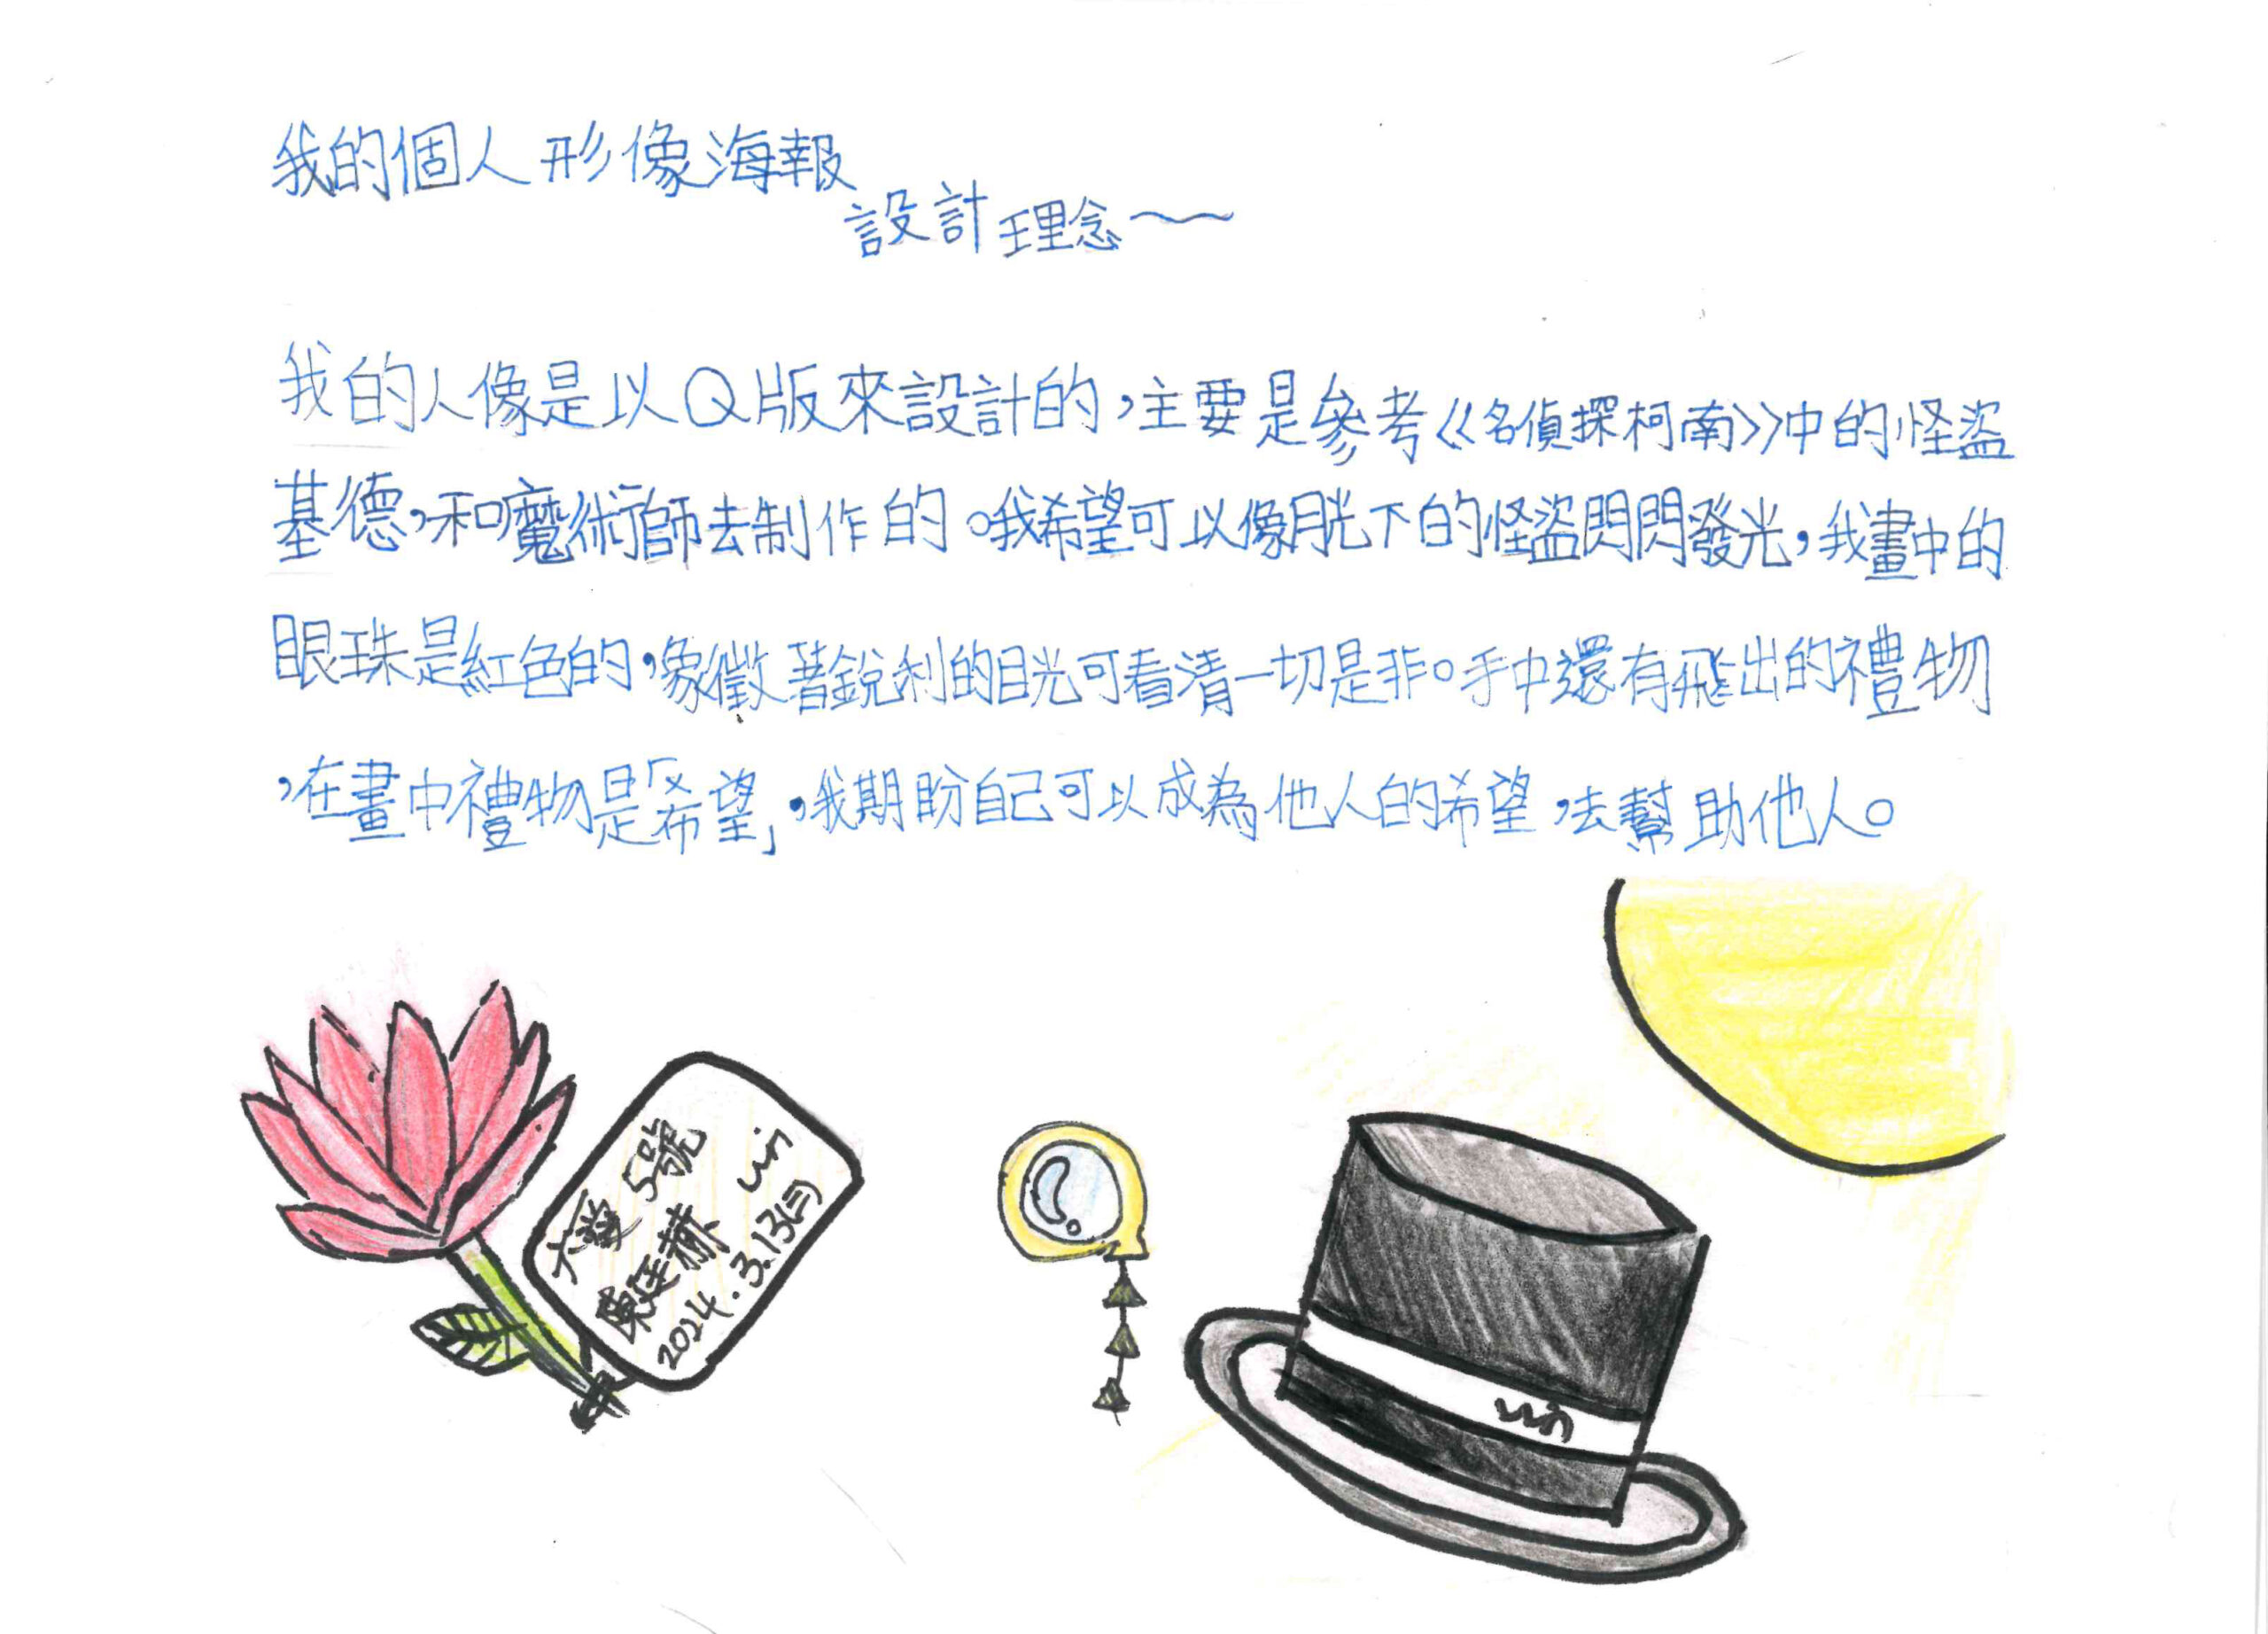 我的個人形像海報
設計理念～
我的人像是以Q版來設計的，主要是參考《名偵探柯南》中的怪盜
基德，和魔術師去制作的。我希望可以像月光下的怪盜閃閃發光，我畫中的
眼珠是紅色的，象徵著銳利的目光可看清一切是非。手中還有飛出的禮物
，在畫中禮物是「希望」，我期盼自己可以成為他人的希望，去幫助他人。
大愛 5號
陳廷赫
2024.3.13(三)